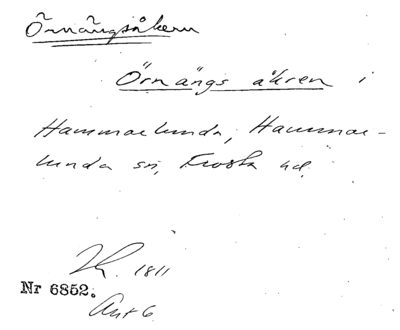 Örnängsåkern
Örnängs åkren i
Hammarlunda, Hammar-
lunda sn, Frosta hd.
1811
Nr 6852.
Akt 6